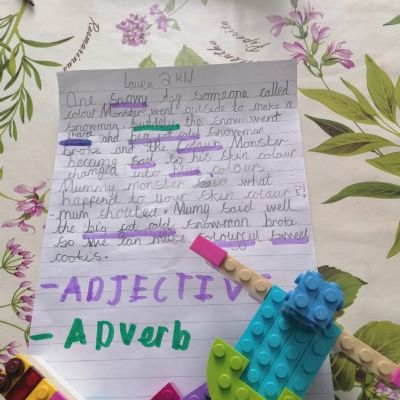 Laura 2HW
One snowy day someone called
colour Monster went outside to make a
snowman. Suddely the snow went
hard and big fat old snowman
broke and the colour Monster
becomg sad so his skin colour
changed into blue colour.
Mummy monster said what
happend to your skin colour?!
mum shouted. Mumy said well
the big fat old snowman broke
so we can make colourful sweet
cookis.
-ADJECTIVE
- ADverb
Rosmarinus